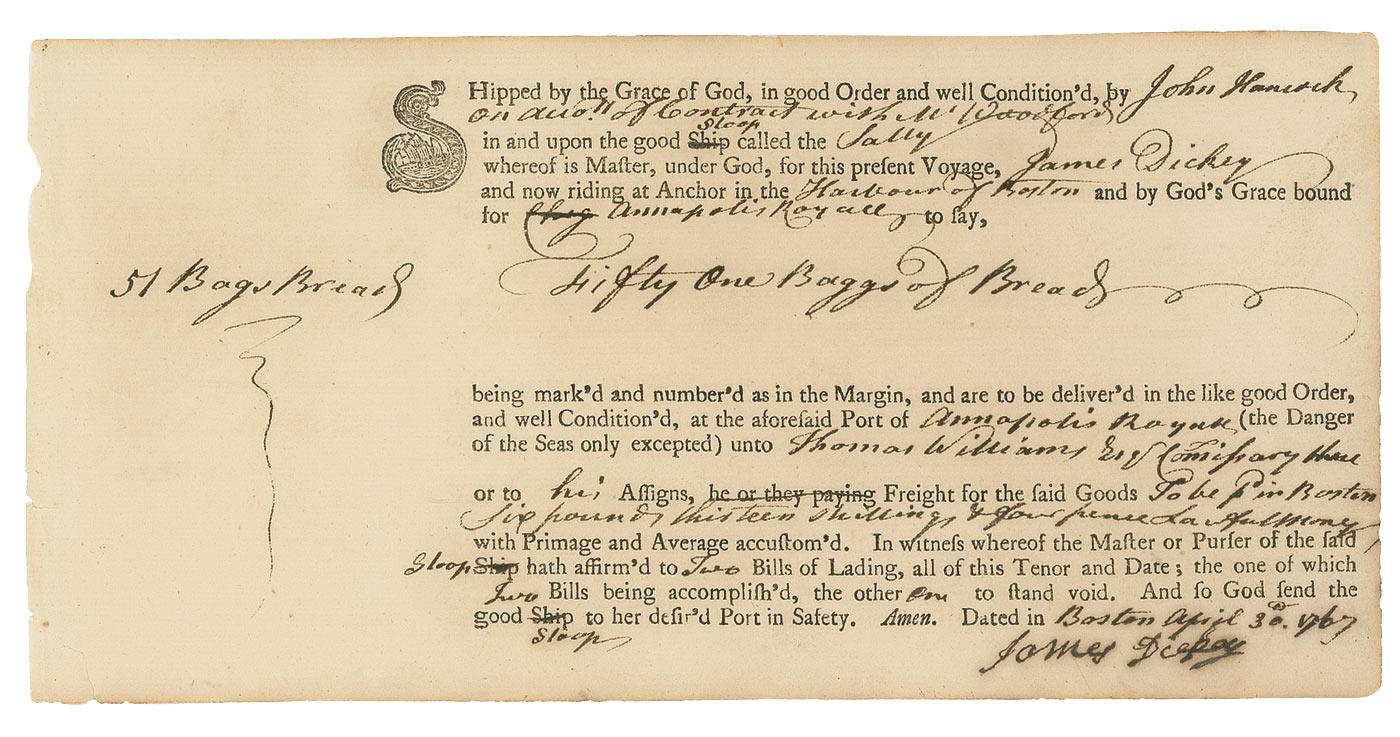 SHipped by the Grace of God, in good Order and well Condition'd, by John Hancock
on accott. of Contract with Mr Woodford
in and upon the good Ship Sloop called the Sally
whereof is Maſter, under God, for this preſent Voyage, James Dickey
and now riding at Anchor in the Harbour of Boston and by God's Grace bound
for Annapolis Royall to ſay,
51 Bags Bread
Fifty One Baggs of Bread
being mark'd and number'd as in the Margin, and are to be deliver'd in the like good Order,
and well Condition'd, at the aforeſaid Port of Annapolis Royall (the Danger
of the Seas only excepted) unto Thomas Williams Esqr Comiſsary there
or to his Aſſigns, he or they paying Freight for the ſaid Goods To be pd in Boston
Six pounds thirteen shillings & four pence Lawfull Money
with Primage and Average accuſtom'd. In witneſs whereof the Maſter or Purſer of the ſaid
Sloop Ship hath affirm'd to Two Bills of Lading, all of this Tenor and Date; the one of which
Two Bills being accompliſh'd, the other One to ſtand void. And ſo God ſend the
good Ship to her deſir'd Port in Safety. Amen. Dated in Boston April 3d. 1767
Sloop
James Dickey